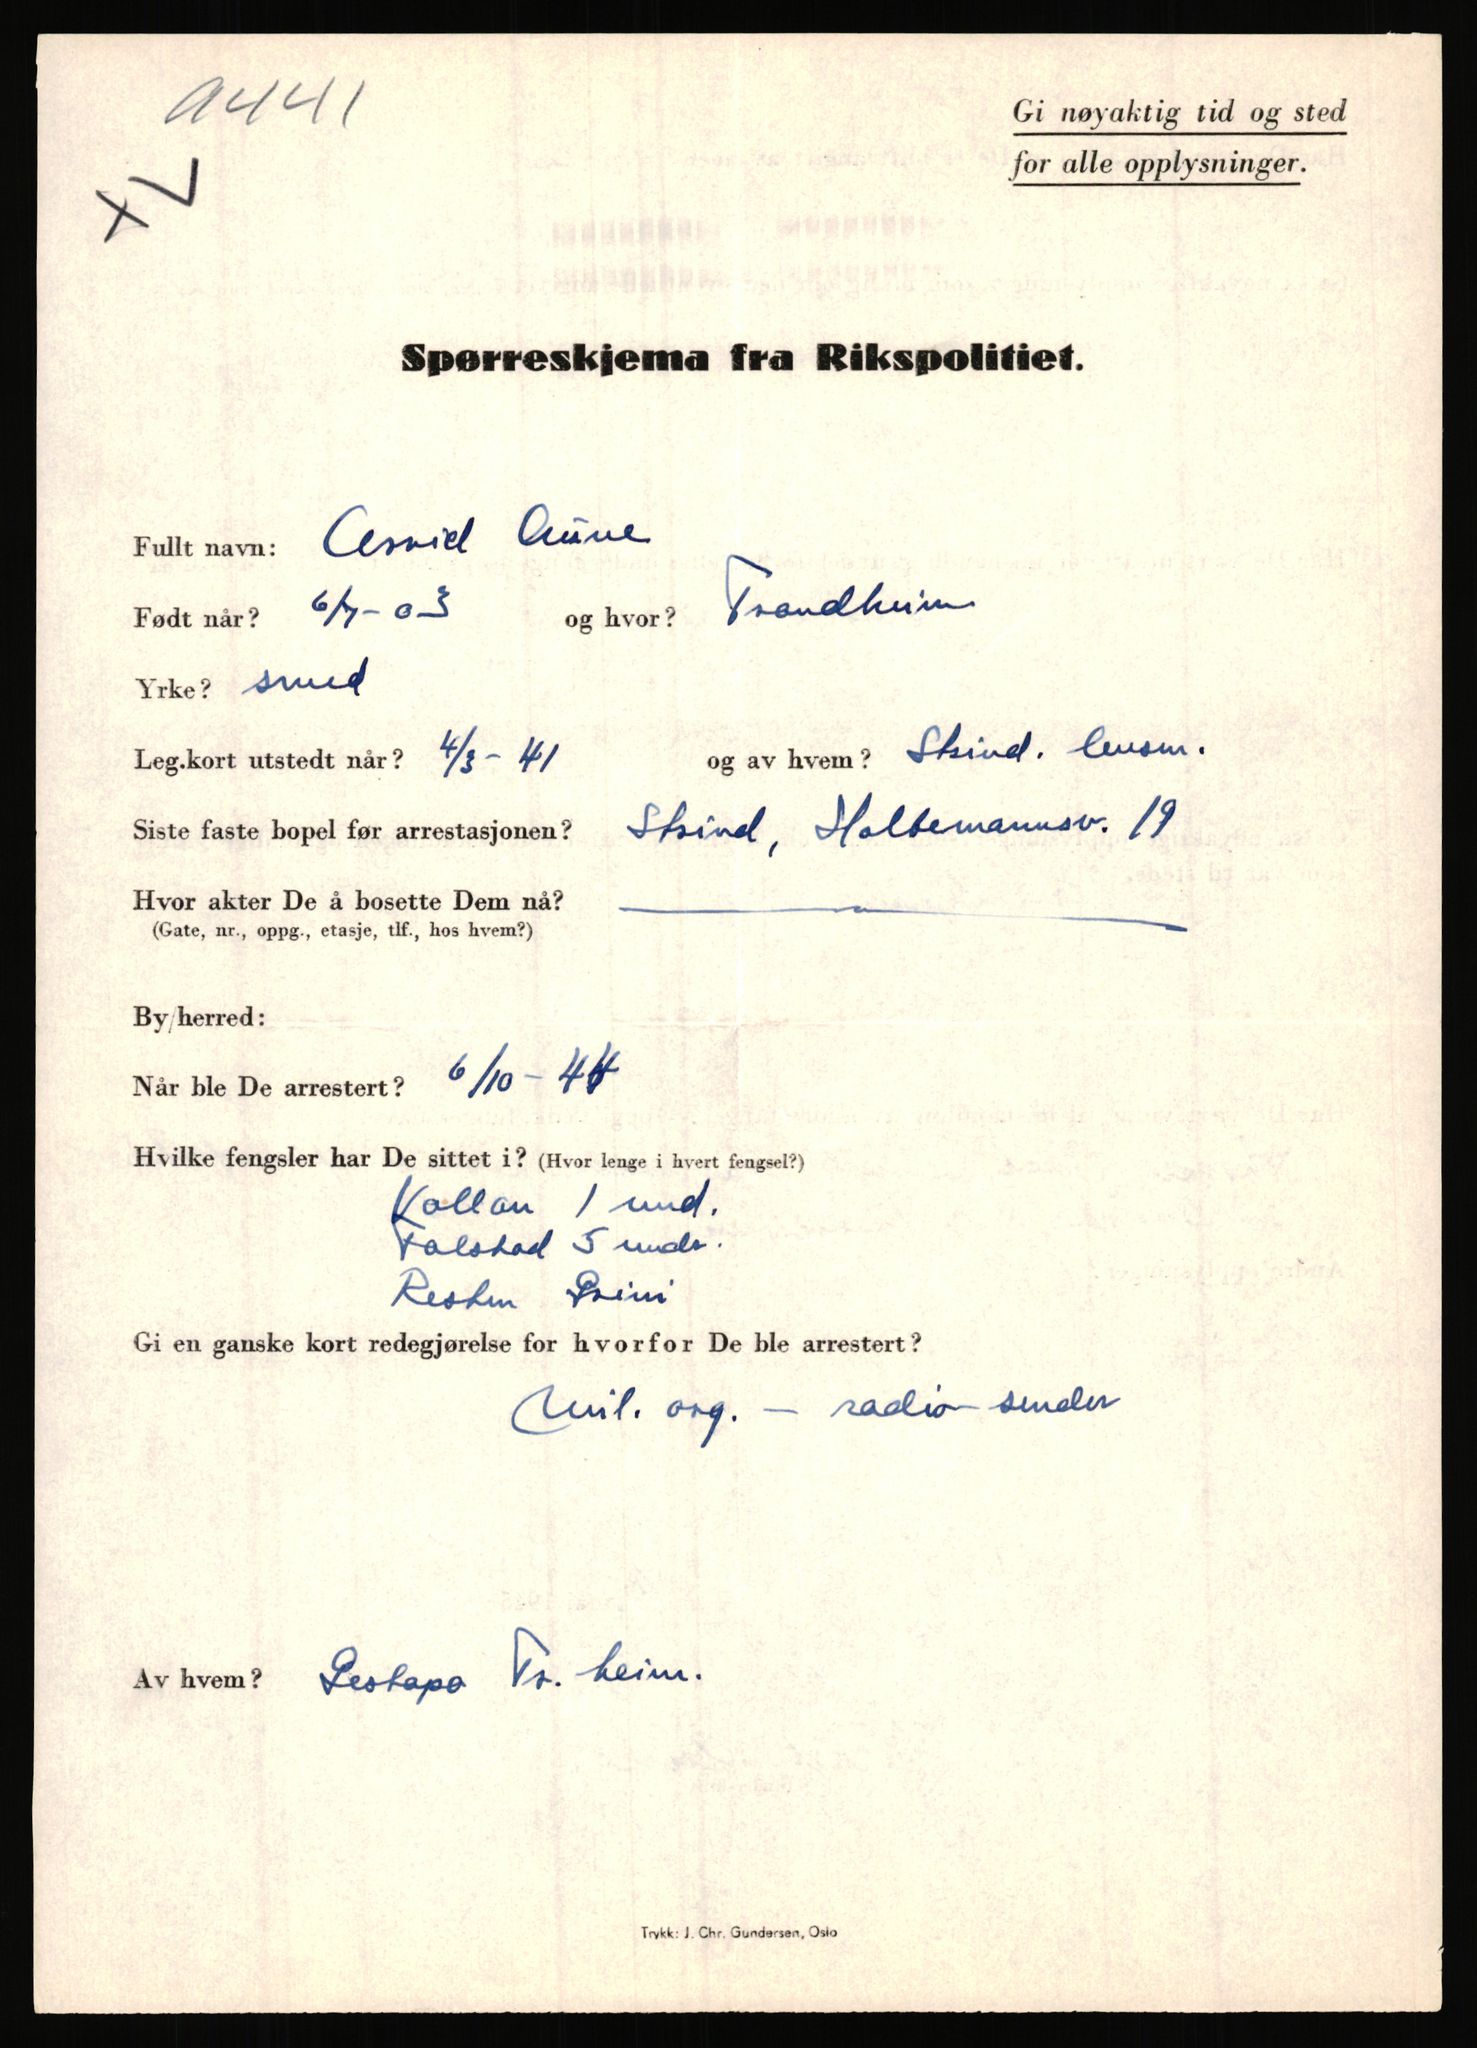 A441
XV
Gi nøyaktig tid og sted
for alle opplysninger.
Spørreskjema fra Rikspolitiet.
Fullt navn: Arvid Aune
Født når? 6/7-03 og hvor? Trondheim
Yrke? smed
Leg.kort utstedt når? 4/3-41 og av hvem? Strind. lensm.
Siste faste bopel før arrestasjonen? Strind, Holtermannsv. 19
Hvor akter De å bosette Dem nå?
(Gate, nr., oppg., etasje, tlf., hos hvem?)
By/herred:
Når ble De arrestert? 6/10-44
Hvilke fengsler har De sittet i? (Hvor lenge i hvert fengsel?)
Vollan 1 mnd.
Falstad 5 mndr.
Resten Grini
Gi en ganske kort redegjørelse for hvorfor De ble arrestert?
Mil. org. - radio-sender
Av hvem? Gestapo Tr. heim.
Trykk: J. Chr. Gundersen, Oslo